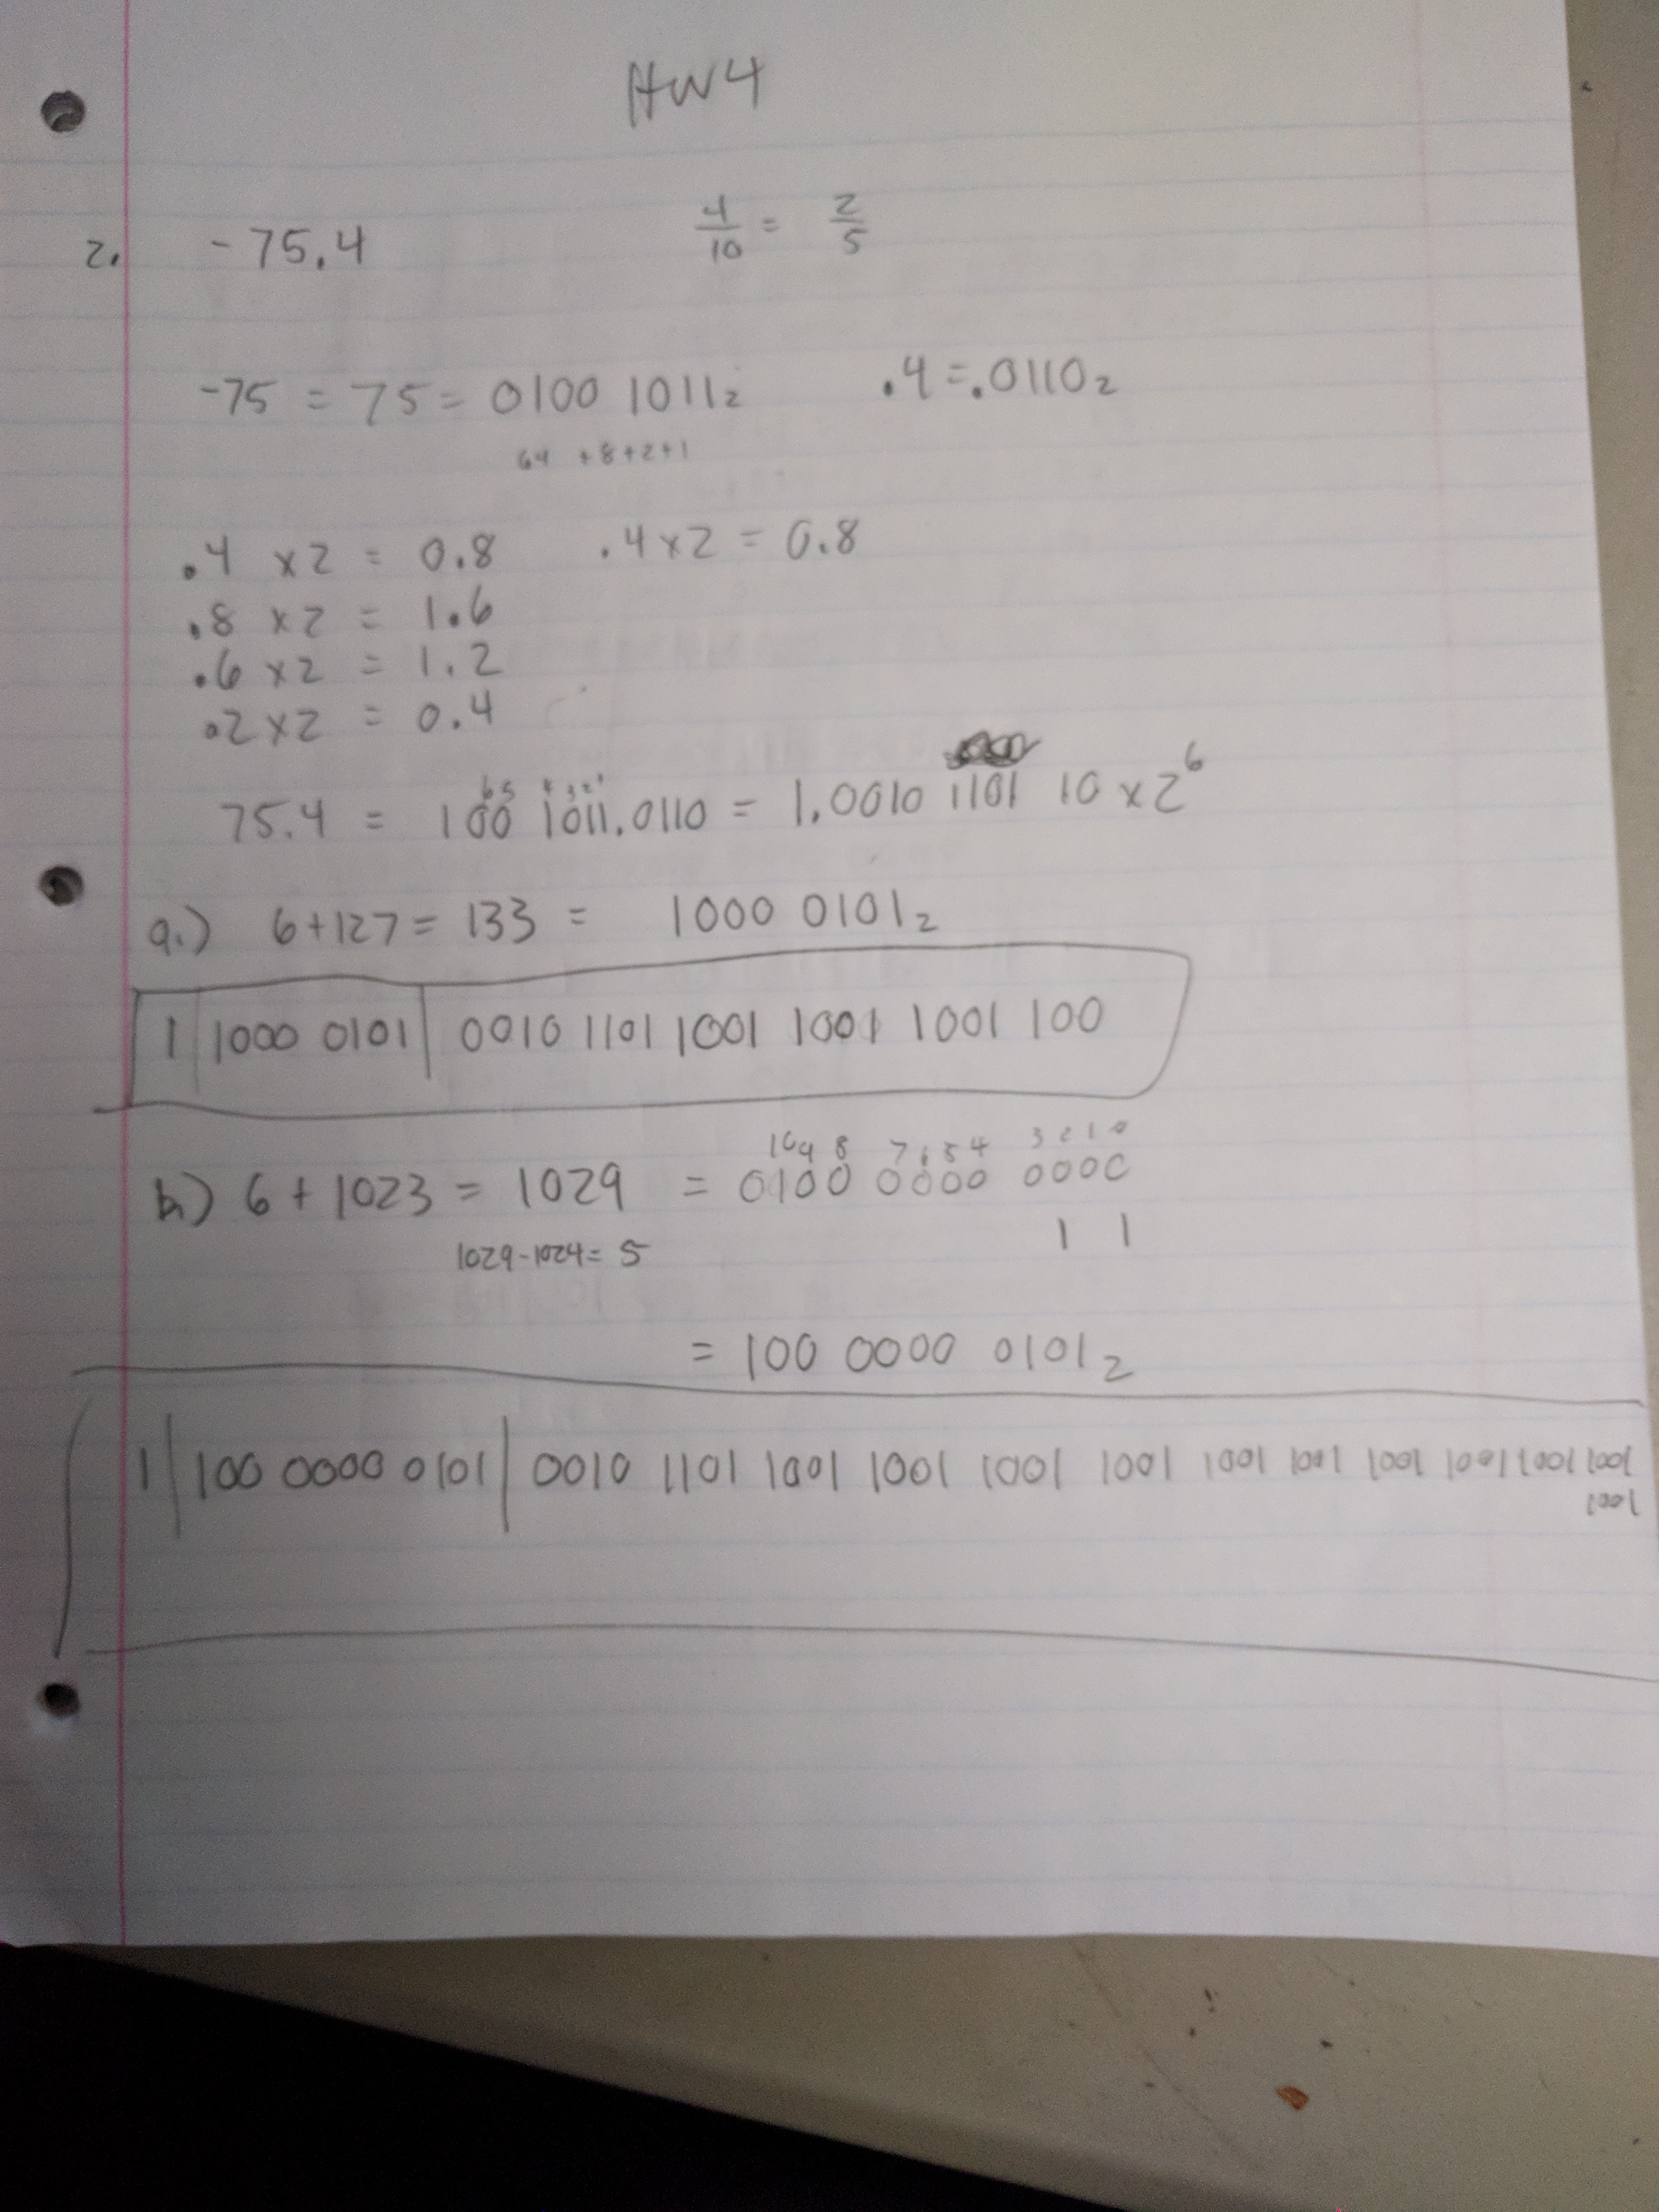 HW4
2. -75.4 4/10 = 2/5
-75 = 75 = 0100 1011₂ .4 = .0110₂
64 +8+2+1
.4 x2 = 0.8 .4x2 = 0.8
.8 x2 = 1.6
.6 x2 = 1.2
.2x2 = 0.4
65 4321
75.4 = 100 1011.0110 = 1.0010 1101 10 x 2⁶
a.) 6+127 = 133 = 1000 0101₂
1 | 1000 0101 | 0010 1101 1001 1001 1001 100
10 9 8 7 6 5 4 3 2 1 0
b.) 6 + 1023 = 1029 = 0100 0000 0000
1029-1024= 5 1 1
= 100 0000 0101₂
1 | 100 0000 0101 | 0010 1101 1001 1001 1001 1001 1001 1001 1001 1001 1001 1001
1001